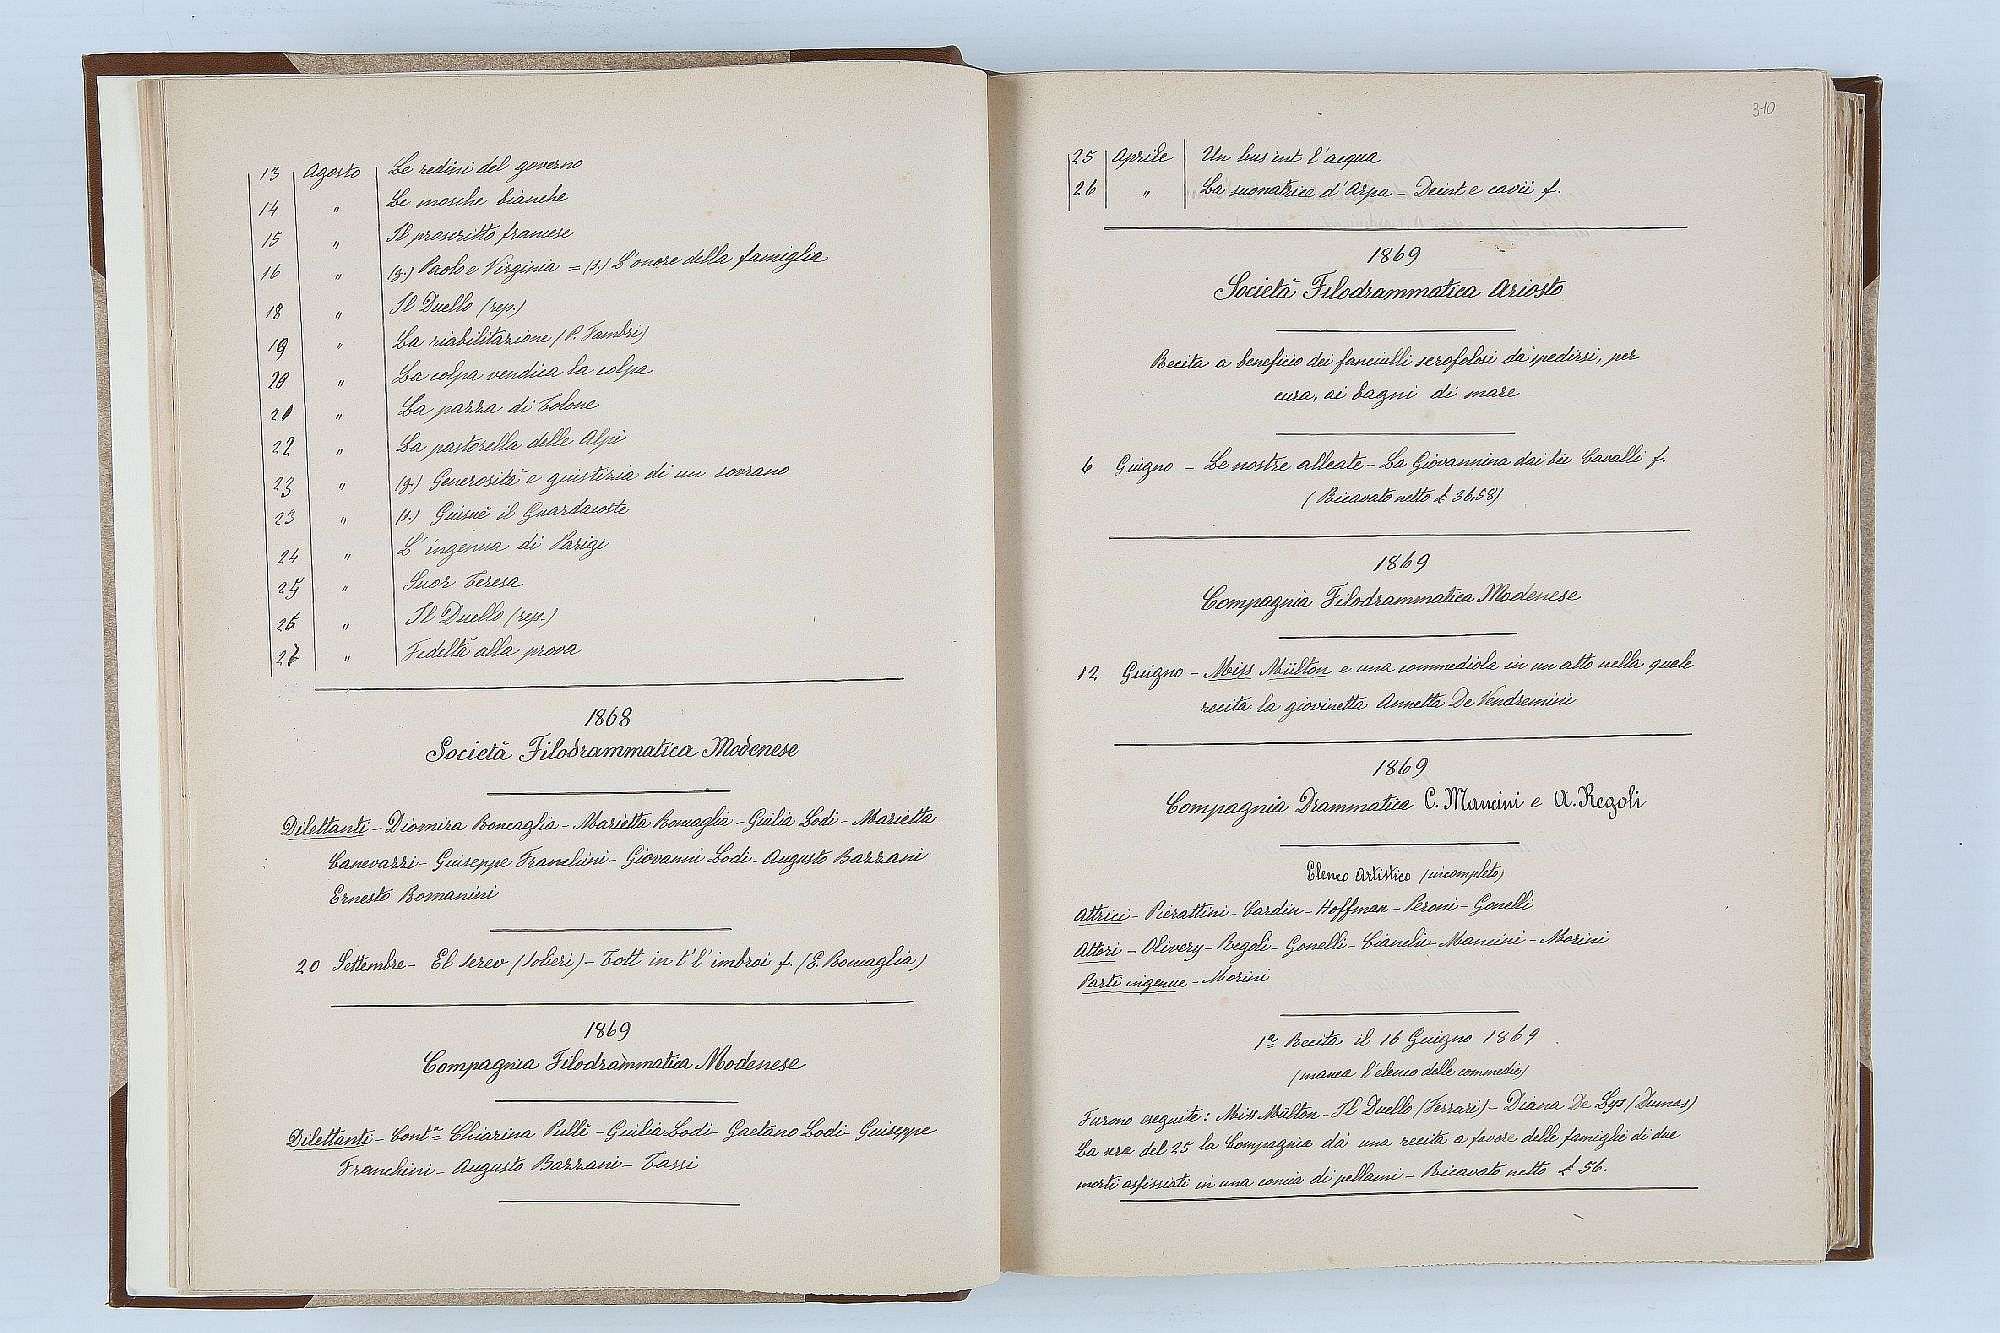 13 Agosto Le redini del governo
14 " Le mosche bianche
15 " Il proscritto francese
16 " (g.) Paolo e Virginia = (s.) L'onore della famiglia
18 " Il Duello (rep.)
19 " La riabilitazione (P. Fambri)
20 " La colpa vendica la colpa
21 " La pazza di Tolone
22 " La pastorella delle Alpi
23 " (g.) Generosità e giustizia di un sovrano
23 " (s.) Guisuè il Guardacoste
24 " L'ingenua di Parigi
25 " Suor Teresa
26 " Il Duello (rep.)
27 " Fedeltà alla prova
1868
Società Filodrammatica Modenese
Dilettanti - Diomira Roncaglia - Marietta Roncaglia - Giulia Lodi - Marietta
Canevazzi - Giuseppe Franchini - Giovanni Lodi - Augusto Bazzani
Ernesto Romanini
20 Settembre - El Serev (Solieri) - Tott in t'l'imbroi f. (E. Roncaglia)
1869
Compagnia Filodrammatica Modenese
Dilettanti - Contª Chiarina Pulli - Giulia Lodi - Gaetano Lodi - Giuseppe
Franchini - Augusto Bazzani - Tassi
310
25 Aprile Un bus int l'acqua
26 " La suonatrice d'Arpa - Deint e cavii f.
1869
Società Filodrammatica Ariosto
Recita a beneficio dei fanciulli scrofolosi da spedirsi, per
cura, ai bagni di mare
6 Giugno - Le nostre alleate - La Giovannina dai bei Cavalli f.
(Ricavato netto £ 36,58)
1869
Compagnia Filodrammatica Modenese
12 Giugno - Miss Mülton e una commediola in un atto nella quale
recita la giovinetta Annetta De Vendremini
1869
Compagnia Drammatica C. Mancini e A. Regoli
Elenco Artistico (incompleto)
Attrici - Pierattini - Cardin - Hoffman - Peroni - Gonelli
Attori - Olivery - Regoli - Gonelli - Cianchi - Mancini - Morini
Parti ingenue - Morini
1ª Recita il 16 Giugno 1869
(manca l'elenco delle commedie)
Furono eseguite: Miss Mülton - Il Duello (Ferrari) - Diana De Lys (Dumas)
La sera del 25 la Compagnia dà una recita a favore delle famiglie di due
morti asfissiati in una concia di pellami - Ricavato netto £ 56.